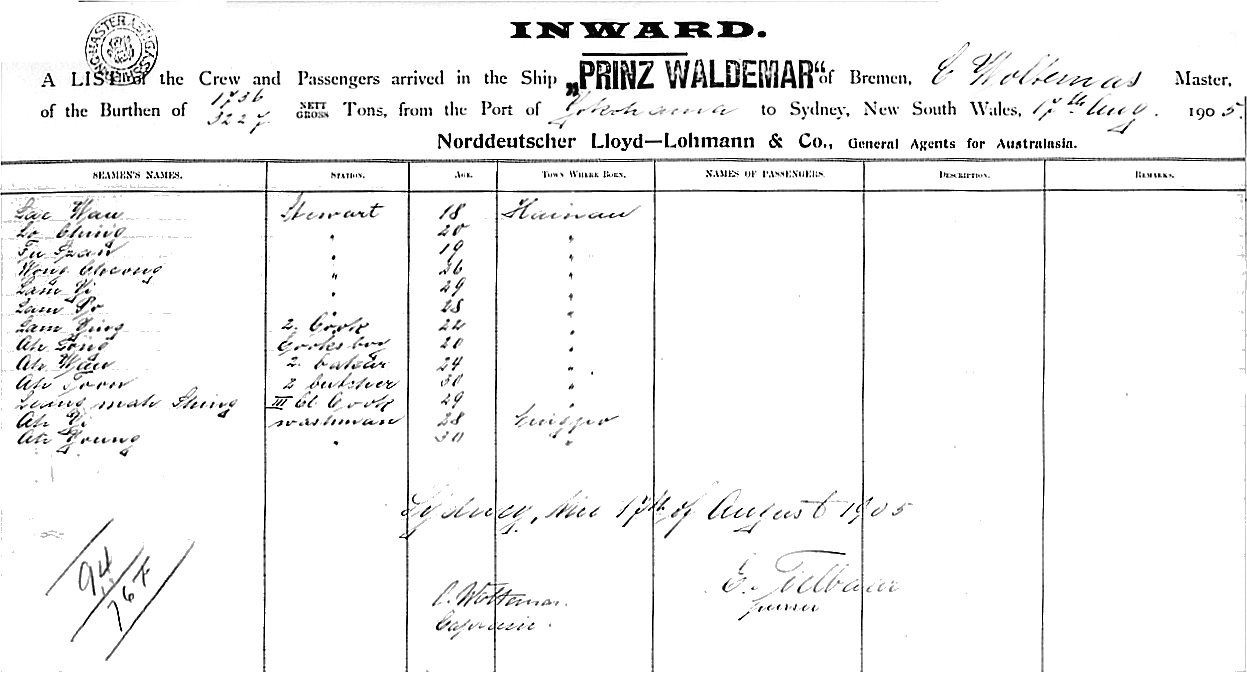 INWARD.
A LIST of the Crew and Passengers arrived in the Ship „PRINZ WALDEMAR“ of Bremen, C Woltemas Master,
of the Burthen of 1736 3227 NETT GROSS Tons, from the Port of Yokohama to Sydney, New South Wales, 17th Aug. 1905.
Norddeutscher Lloyd—Lohmann & Co., General Agents for Australasia.
SEAMEN'S NAMES. STATION. AGE. TOWN WHERE BORN. NAMES OF PASSENGERS. DESCRIPTION. REMARKS.
Wau Stewart 18 Hainau
Lo Ching " 20 "
" 19 "
Wong Cheong " 26 "
Lam Yi " 29 "
Lam Po " 28 "
Lam Ying 2. Cook 22 "
Ah Long Cooksboy 20 "
Ah Wau 2. baker 24 "
Ah Toon 2 butcher 30 "
Leang mah Shing III Cl Cook 29 "
Ah Yi washman 28
Ah Young " 30 "
Sydney, the 17th of August 1905
94
76 F
C. Woltemas.
E.
purser